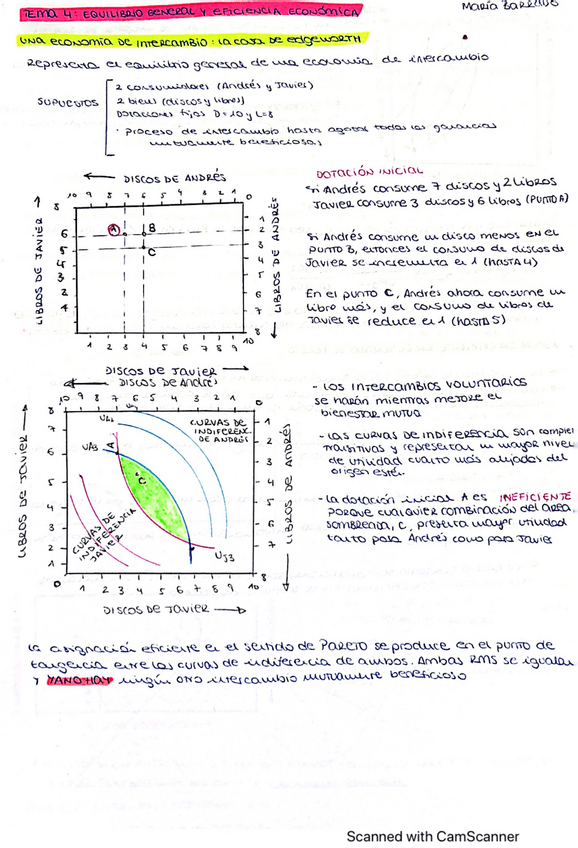 TEMA 4: EQUILIBRIO GENERAL Y EFICIENCIA ECONÓMICA
María
UNA ECONOMÍA DE INTERCAMBIO: LA CAJA DE EDGEWORTH
Representa el equilibrio general de una economía de intercambio
SUPUESTOS
2 consumidores (Andrés y Javier)
2 bienes (discos y libros)
Dotaciones fijas D=10 y L=8
· proceso de intercambio hasta agotar todas las ganancias
mutuamente beneficiosas
← DISCOS DE ANDRÉS
10 9 8 7 6 5 4 3 2 1 0
LIBROS DE JAVIER
8
6
5
4
3
2
1
A
B
C
1
2
3
4
5
6
7
8
← LIBROS DE ANDRÉS
1 2 3 4 5 6 7 8 9 10
DISCOS DE JAVIER →
DOTACIÓN INICIAL
Si Andrés consume 7 discos y 2 libros
Javier consume 3 discos y 6 libros (PUNTO A)
Si Andrés consume un disco menos en el
PUNTO B, entonces el consumo de discos de
Javier se incrementa en 1 (HASTA 4)
En el punto C, Andrés ahora consume un
libro más, y el consumo de libros de
Javier se reduce en 1 (hasta 5)
← DISCOS DE Andrés
10 9 8 7 6 5 4 3 2 1 0
LIBROS DE JAVIER →
8
7
6
5
4
3
2
1
UA3
A
C
CURVAS DE
INDIFERENC.
DE ANDRÉS
CURVAS DE
INDIFERENCIA
JAVIER
UJ3
1
2
3
4
5
6
7
8
← LIBROS DE ANDRÉS
0 1 2 3 4 5 6 7 8 9 10
DISCOS DE JAVIER →
- LOS INTERCAMBIOS VOLUNTARIOS
se harán mientras mejore el
bienestar mutuo
- Las CURVAS DE INDIFERENCIA son
transitivas y representan un mayor nivel
de utilidad cuanto más alejados del
origen estén.
- La dotación inicial A es INEFICIENTE
porque cualquier combinación del area
sombreada, C, presenta mayor utilidad
tanto para Andrés como para Javier
La asignación eficiente en el sentido de PARETO se produce en el punto de
tangencia entre las curvas de indiferencia de ambos. Ambas RMS se igualan
y YA NO HAY ningún otro intercambio mutuamente beneficioso
Scanned with CamScanner